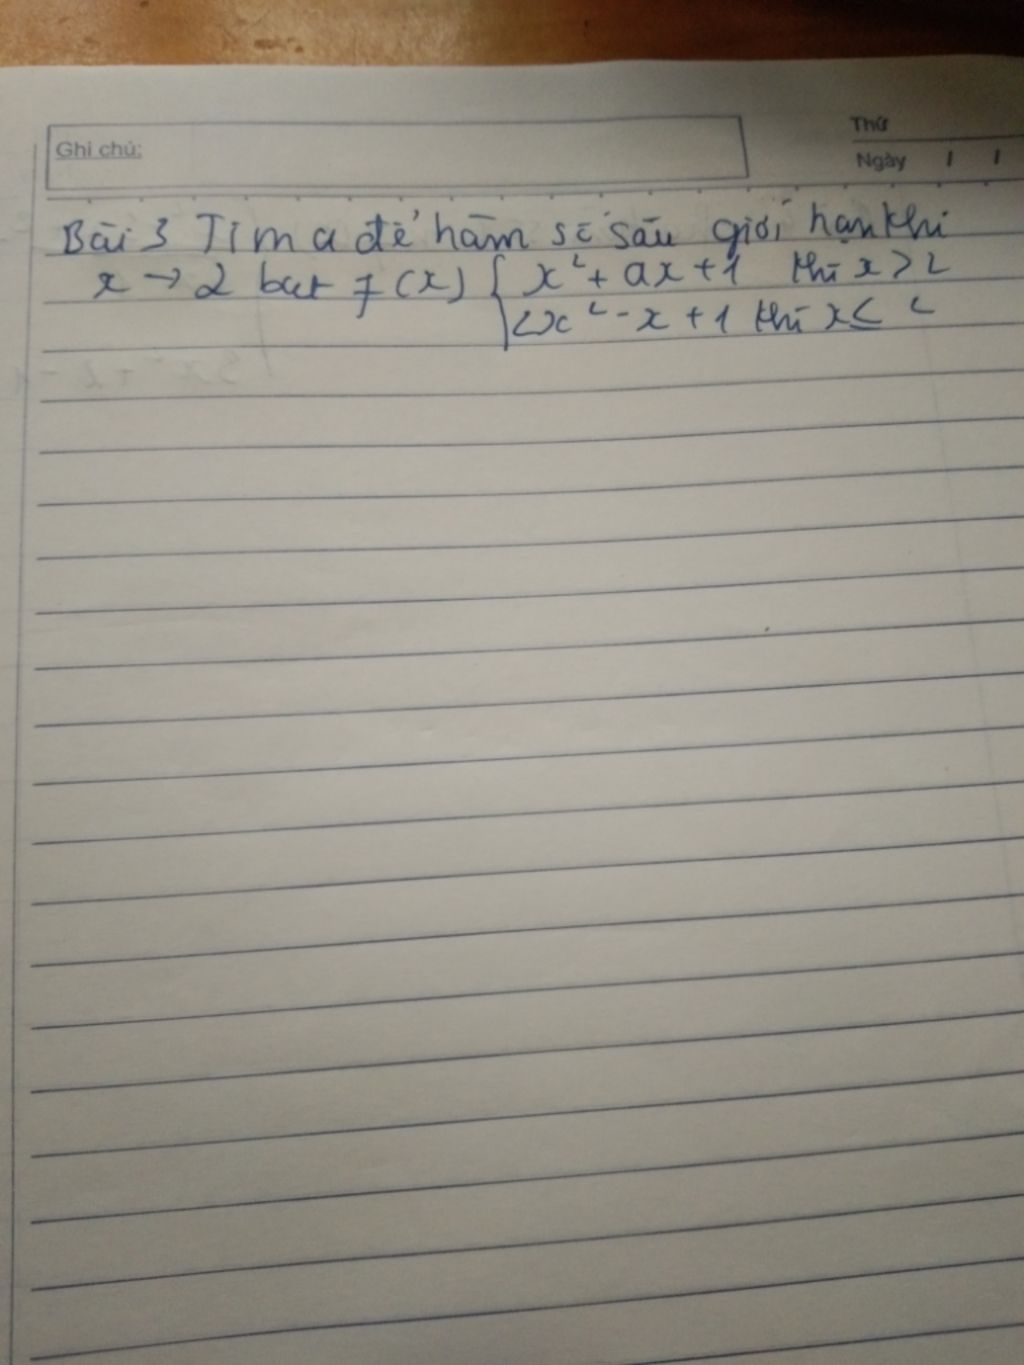 Ghi chú:
Thứ
Ngày / /
Bài 3 Tìm a để hàm số sau giới hạn khi
x → 2 biết f(x) { x² + ax + 1 khi x > 2
2x² - x + 1 khi x ≤ 2